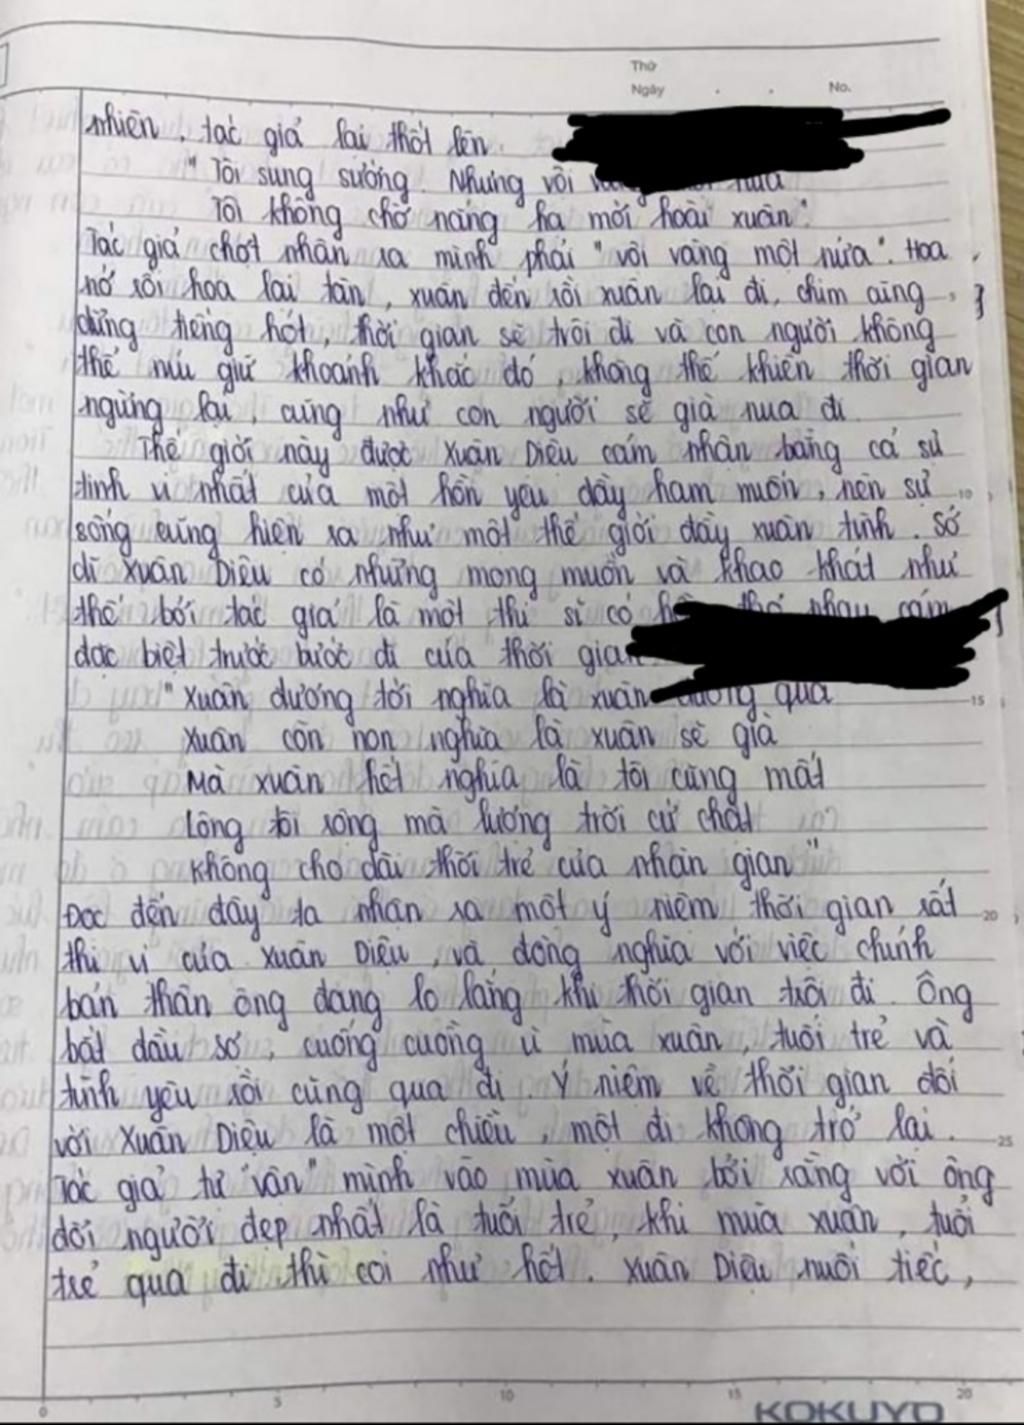 Thứ
Ngày . . No.
nhiên. tác giả lại thốt lên.
" Tôi sung sướng. Nhưng vội nửa
Tôi không chờ nắng hạ mới hoài xuân".
Tác giả chợt nhận ra mình phải "vội vàng một nửa". Hoa
nở rồi hoa lại tàn, xuân đến rồi xuân lại đi, chim cũng
dừng tiếng hót, thời gian sẽ trôi đi và con người không
thể níu giữ khoảnh khắc đó, không thể khiến thời gian
ngừng lại, cũng như con người sẽ già nua đi
Thế giới này được Xuân Diệu cảm nhận bằng cả sự
tinh vi nhất của một hồn yêu đầy ham muốn, nên sự 10
sống cũng hiện ra như một thế giới đầy xuân tình. Sở
dĩ Xuân Diệu có những mong muốn và khao khát như
thế bởi tác giả là một thi sĩ có
đặc biệt trước bước đi của thời gian
" Xuân đương tới nghĩa là xuân đương qua 15
Xuân còn non nghĩa là xuân sẽ già
Mà xuân hết nghĩa là tôi cũng mất
Lòng tôi rộng mà lượng trời cứ chật
Không cho dài thời trẻ của nhân gian"
Đọc đến đây ta nhận ra một ý niệm thời gian rất 20
thi vị của Xuân Diệu, và đồng nghĩa với việc chính
bản thân ông đang lo lắng khi thời gian trôi đi. Ông
bắt đầu sợ, cuống cuồng vì mùa xuân, tuổi trẻ và
tình yêu rồi cũng qua đi. Ý niệm về thời gian đối
với Xuân Diệu là một chiều, một đi không trở lại. 25
Tác giả tự "vận" mình vào mùa xuân bởi rằng với ông
đời người đẹp nhất là tuổi trẻ, khi mùa xuân, tuổi
trẻ qua đi thì coi như hết. Xuân Diệu nuối tiếc,
0 5 10 15 20
KOKUYO